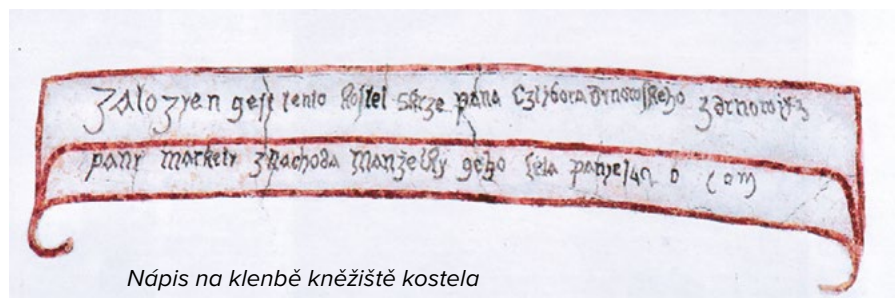 Zalozyen gest tento kostel skrze pana Cztibora drnowskeho z drnowicz
pany markety z Nachoda Manželky geho leta panye
Nápis na klenbě kněžiště kostela